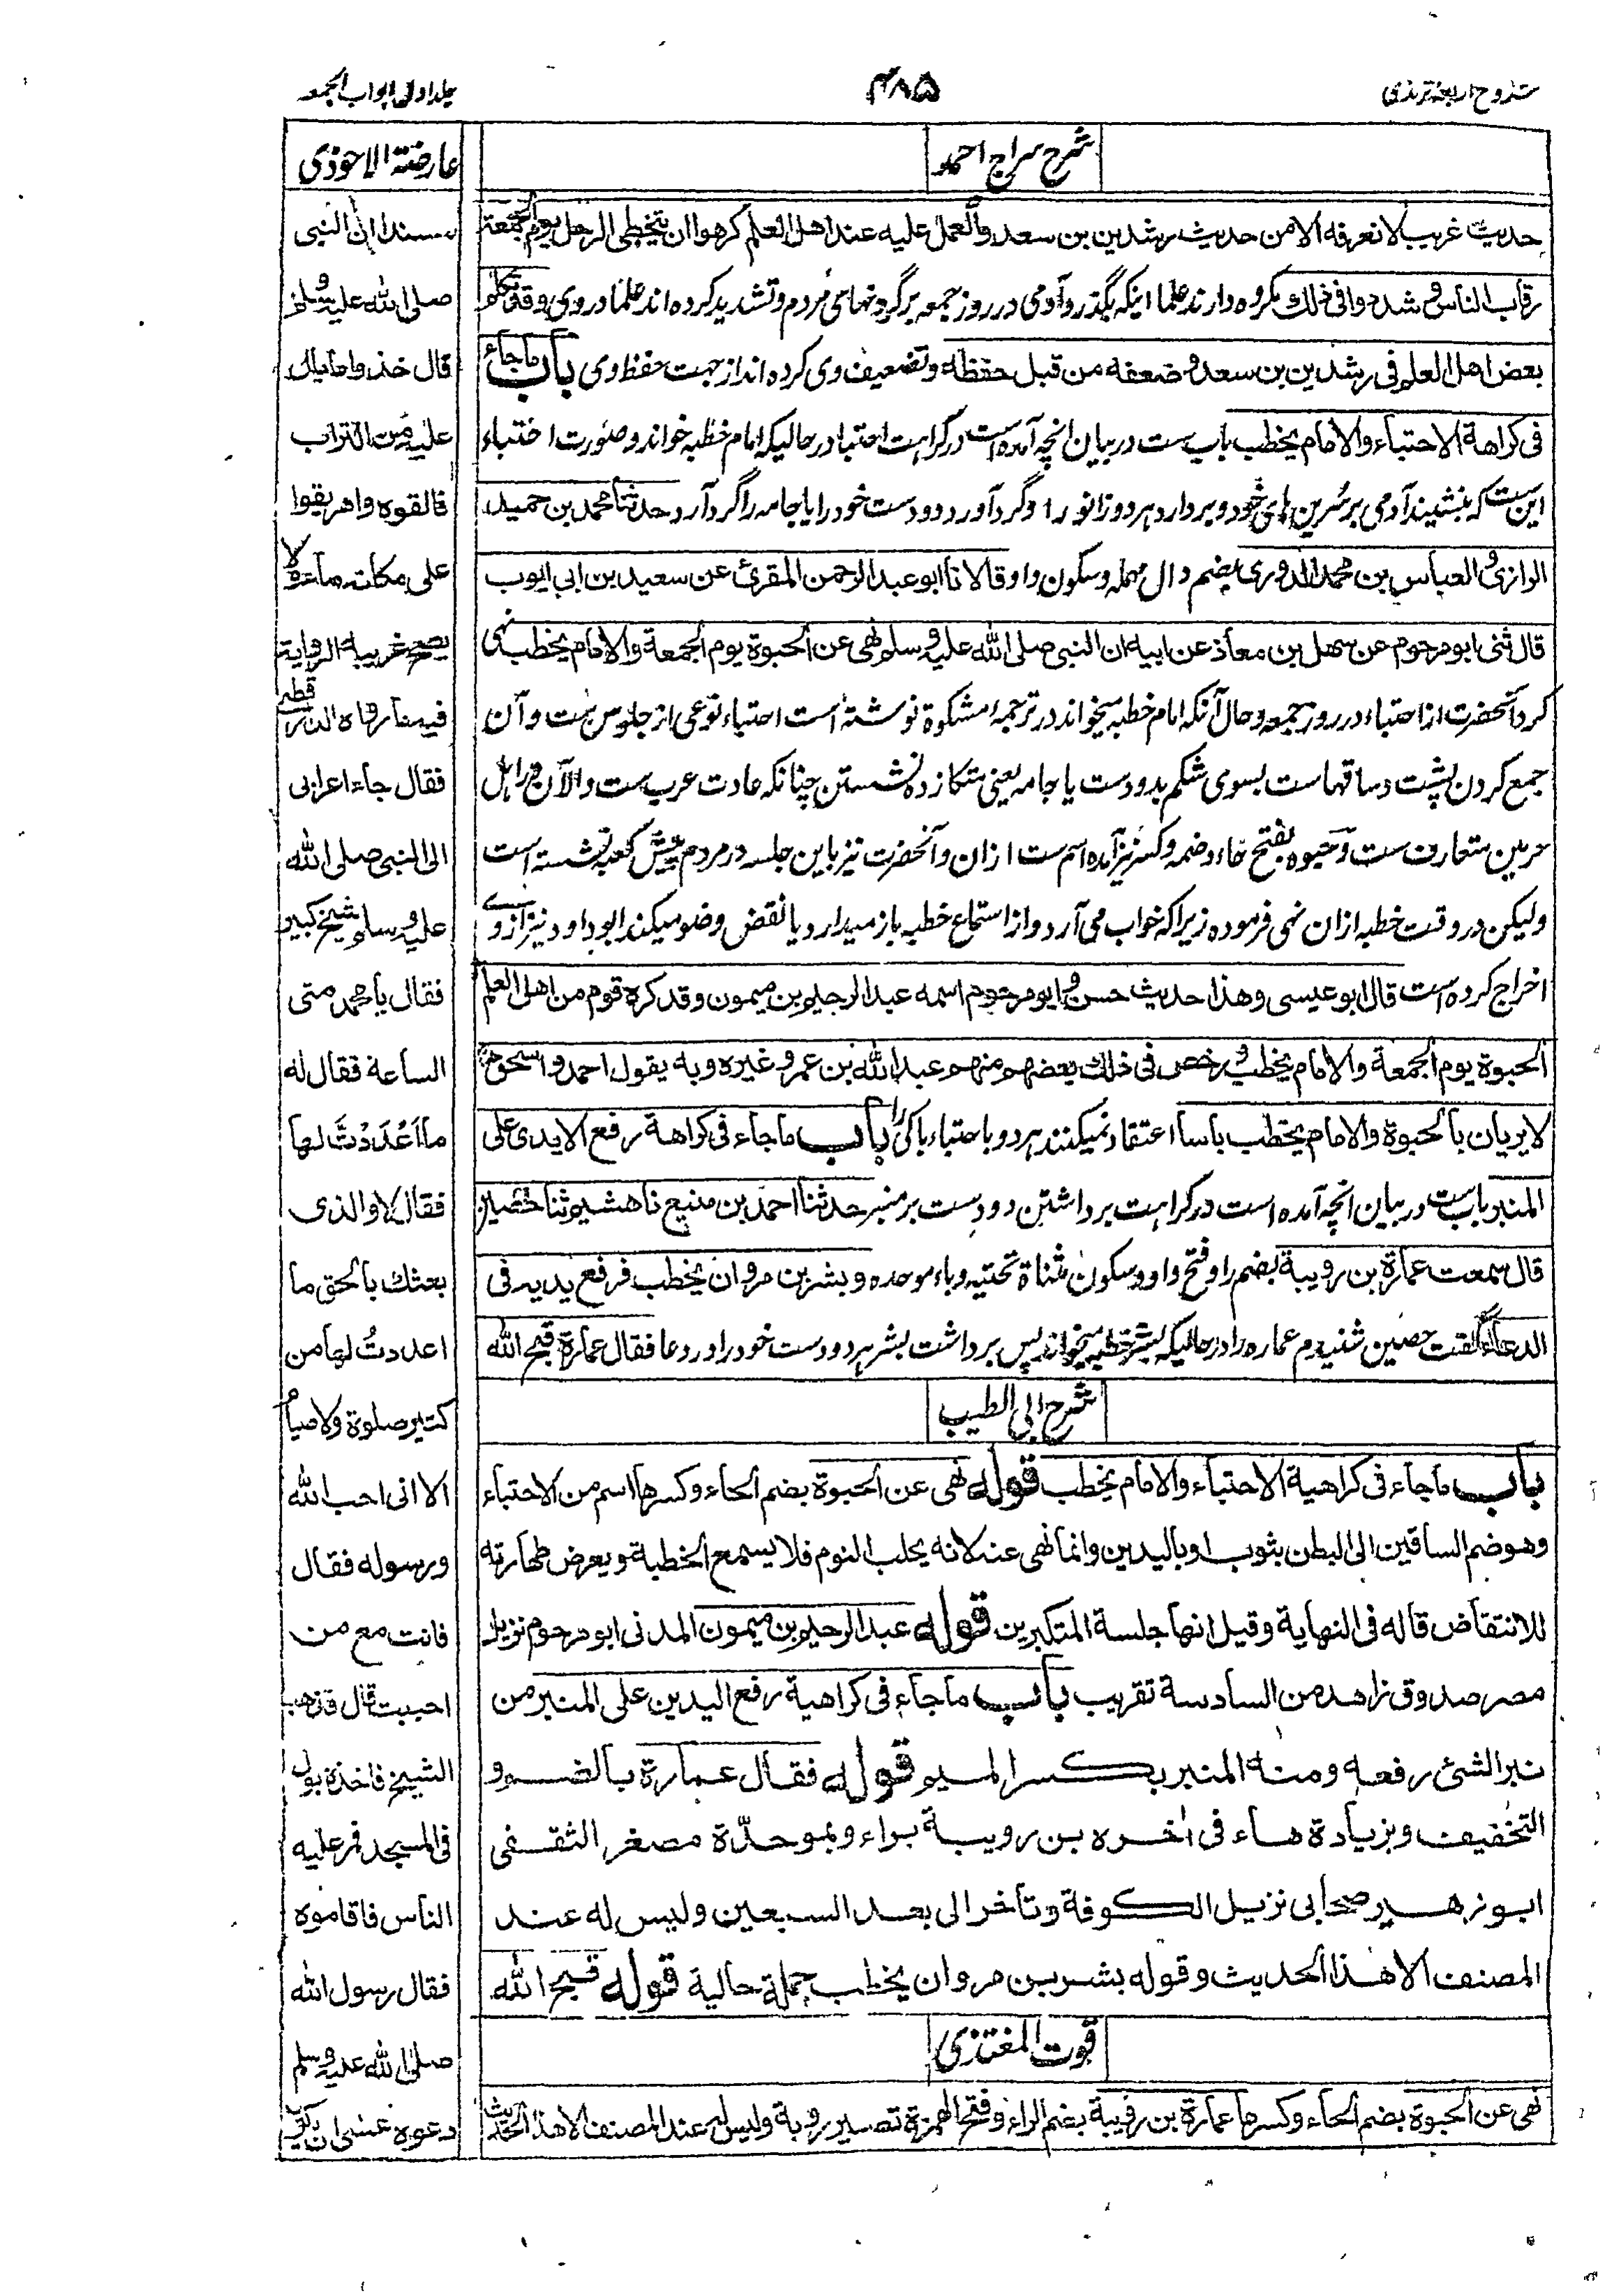 شروح اربعہ ترمذی
۴۸۵
جلد اول ابواب الجمعہ
شرح سراج احمد
حدیث غریب لا نعرفه الا من حدیث رشدین بن سعد والعمل علیه عند اهل العلم کرهوا ان یتخطی الرجل یوم الجمعة
رقاب الناس وشددوا فی ذلك مکروه دارند علما اینکه بگذرد آدمی در روز جمعه بر گردنهای مردم و تشدید کرده اند علما در وی وقد تکلم
بعض اهل العلم فی رشدین بن سعد وضعفه من قبل حفظه وتضعیف وی کرده اند از جهت حفظ وی باب ما جاء
فی کراهة الاحتباء والامام یخطب باب ست در بیان انچه آمده است در کراهت احتبا در حالیکه امام خطبه خواند و صورت احتباء
این ست که بنشیند آدمی بر سرین های خود و بردارد هر دو زانو را و گرد آورد دو دست خود را یا جامه را گرد آرد حدثنا محمد بن حمید
الرازی والعباس بن محمد الدوری بضم دال مهمله وسکون واو قالا نا ابو عبد الرحمن المقرئ عن سعید بن ابی ایوب
قال ثنی ابو مرحوم عن سهل بن معاذ عن ابیه ان النبی صلی الله علیه وسلم نهی عن الحبوة یوم الجمعة والامام یخطب نهی
کرد آنحضرت از احتباء در روز جمعه و حال آنکه امام خطبه میخواند در ترجمهٔ مشکوة نوشته است احتباء نوعی از جلوس ست و آن
جمع کردن پشت و ساقهاست بسوی شکم بدو دست یا جامه یعنی متکا زده نشستن چنانکه عادت عرب ست والآن در اهل
حرمین متعارف ست و حبوه بفتح حاء و ضمه و کسر نیز آمده اسم ست ازان و آنحضرت نیز باین جلسه در مردم پیش کعبه نشسته است
ولیکن در وقت خطبه ازان نهی فرموده زیرا که خواب می آرد و از استماع خطبه باز میدارد یا نقض وضو میکند ابو داود نیز از وے
اخراج کرده است قال ابو عیسی وهذا حدیث حسن وابو مرحوم اسمه عبد الرحیم بن میمون وقد کره قوم من اهل العلم
الحبوة یوم الجمعة والامام یخطب ورخص فی ذلك بعضهم منهم عبد الله بن عمر وغیره وبه یقول احمد واسحق
لا یریان بالحبوة والامام یخطب باسا اعتقاد نمیکنند هر دو باحتباء باکی را باب ما جاء فی کراهة رفع الایدی علی
المنبر باب ست در بیان انچه آمده است در کراهت برداشتن دو دست بر منبر حدثنا احمد بن منیع نا هشیم ثنا حصین
قال سمعت عمارة بن رویبة بضم را وفتح واو وسکون مثناة تحتیه وباء موحده وبشر بن مروان یخطب فرفع یدیه فی
الدعاء گفت حصین شنیدم عماره را در حالیکه بشر خطبه میخواند پس برداشت بشر هر دو دست خود را در دعا فقال عمارة قبح الله
شرح ابی الطیب
باب ما جاء فی کراهیة الاحتباء والامام یخطب قوله نهی عن الحبوة بضم الحاء وکسرها اسم من الاحتباء
وهو ضم الساقین الی البطن بثوب او بالیدین وانما نهی عنه لانه یجلب النوم فلا یسمع الخطبة ویعرض طهارته
للانتقاض قاله فی النهایة وقیل انها جلسة المتکبرین قوله عبد الرحیم بن میمون المدنی ابو مرحوم نزیل
مصر صدوق زاهد من السادسة تقریب باب ما جاء فی کراهیة رفع الیدین علی المنبر من
نبر الشئ رفعه ومنه المنبر بکسر المیم قوله فقال عمارة بالضم و
التخفیف وبزیادة هاء فی اخره بن رویبة براء وبموحدة مصغر الثقفی
ابو زهیر صحابی نزیل الکوفة وتاخر الی بعد السبعین ولیس له عند
المصنف الا هذا الحدیث وقوله بشر بن مروان یخطب جملة حالیة قوله قبح الله
قوت المغتذی
نهی عن الحبوة بضم الحاء وکسرها عمارة بن رویبة بضم الراء وفتح الهمزة تصغیر روبة ولیس له عند المصنف الا هذا الحدیث
عارضة الاحوذی
مسندا ان النبی
صلی الله علیه وسلم
قال خذوا ما بال
علیه من التراب
فالقوه واهریقوا
علی مکانه ماء ولا
یصح غریبه الروایة
فیما رواه الدارقطنی
فقال جاء اعرابی
الی النبی صلی الله
علیه وسلم شیخ کبیر
فقال یا محمد متی
الساعة فقال له
ما اَعْدَدْتَ لها
فقال لا والذی
بعثك بالحق ما
اعددتُ لها من
کثیر صلوة ولا صیام
الا انی احب الله
ورسوله فقال
فانت مع من
احببت قال فذهب
الشیخ فاخذه بول
فی المسجد فمر علیه
الناس فاقاموه
فقال رسول الله
صلی الله علیه وسلم
دعوه عسی ان یکون